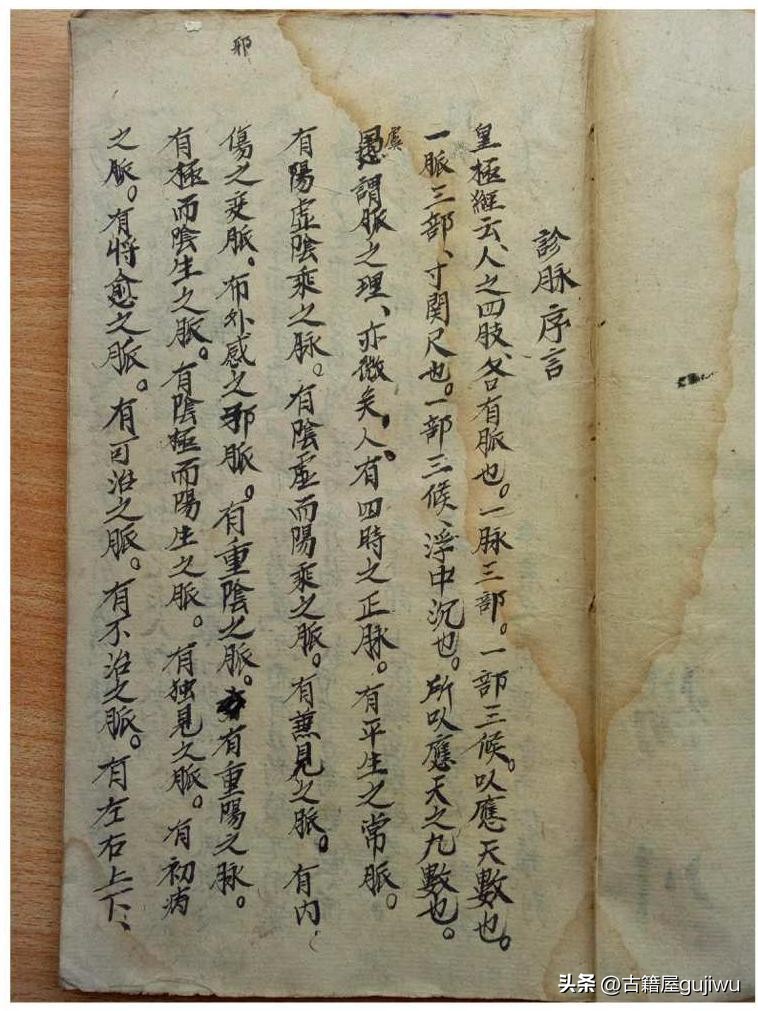 診脉序言
皇極經云、人之四肢、各有脈也。一脉三部。一部三候。以應天數也。
一脈三部、寸関尺也。一部三候、浮中沉也。所以應天之九數也。
愚謂脈之理、亦微矣。人、有四時之正脉。有平生之常脈。
虞
有陽虚陰乘之脉。有陰虚而陽乘之脈。有蕪見之脈。有内
傷之変脈。布外感之邪脈。有重陰之脈。有重陽之脉。
邪
有極而陰生之脈。有陰極而陽生之脈。有独見之脈。有初病
之脈。有将愈之脈。有可治之脈。有不治之脈。有左右上下、
头条 @古籍屋gujiwu